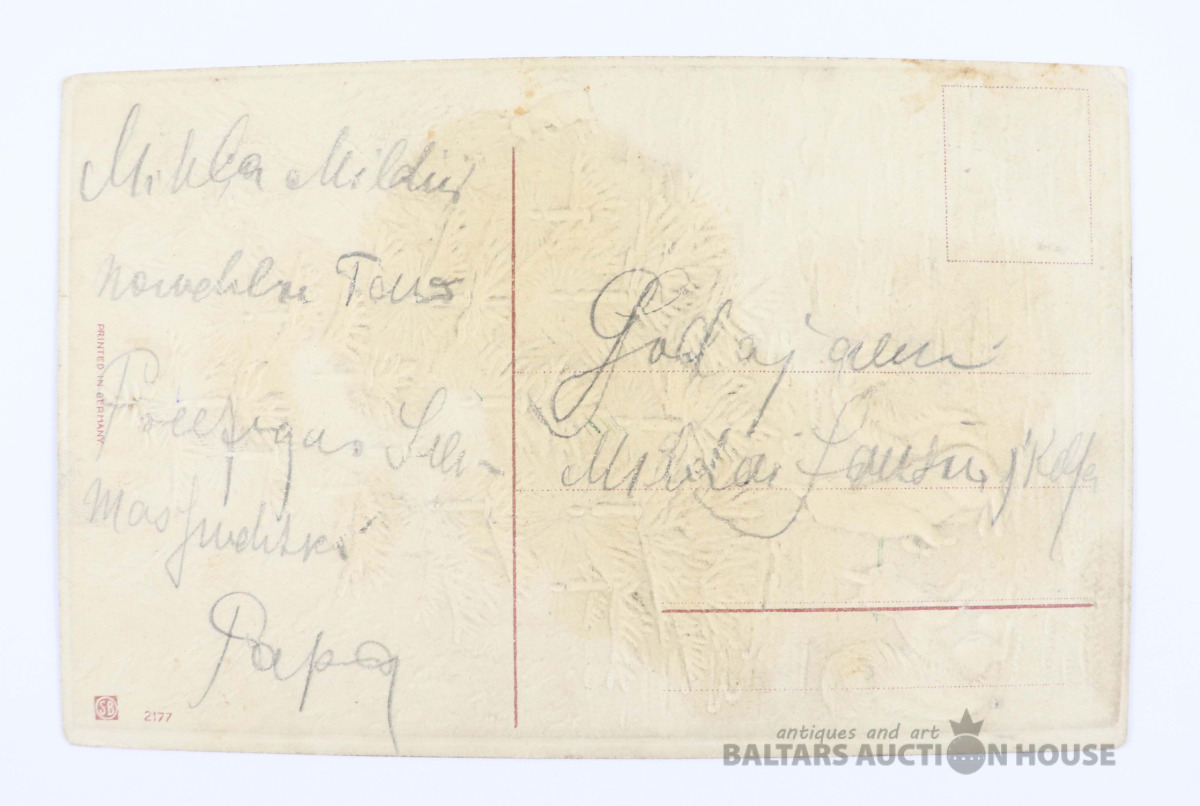 Mihla Mildiņ
nowehlu Taws
Preezigus See-
mas swehtkus
Papa
PRINTED IN GERMANY
SB
2177
Godajamai
Mildai
antiques and art
BALTARS AUCTION HOUSE